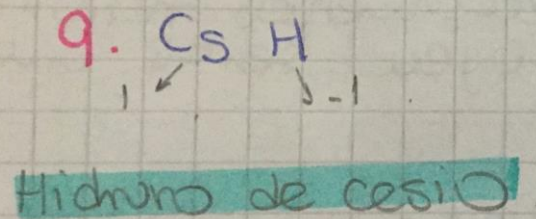 9. Cs H
1 -1
Hidruro de cesio